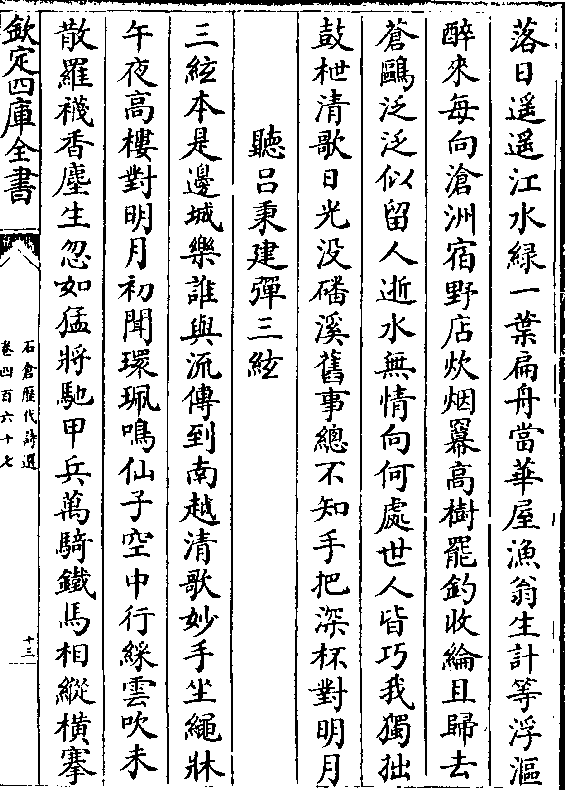 落日遥遥江水緑一葉扁舟當華屋漁翁生計等浮漚
醉來每向滄洲宿野店炊烟羃高樹罷釣收綸且歸去
蒼鷗泛泛似留人逝水無情向何處世人皆巧我獨拙
鼓枻清歌日光没磻溪舊事總不知手把深杯對明月
聽吕秉建彈三絃
三絃本是邊城樂誰與流傳到南越清歌妙手坐繩牀
午夜高樓對明月初聞環珮鳴仙子空中行綵雲吹未
散羅襪香塵生忽如猛將馳甲兵萬騎鐵馬相縱横搴
欽定四庫全書
石倉歷代詩選
卷四百六十七
十三